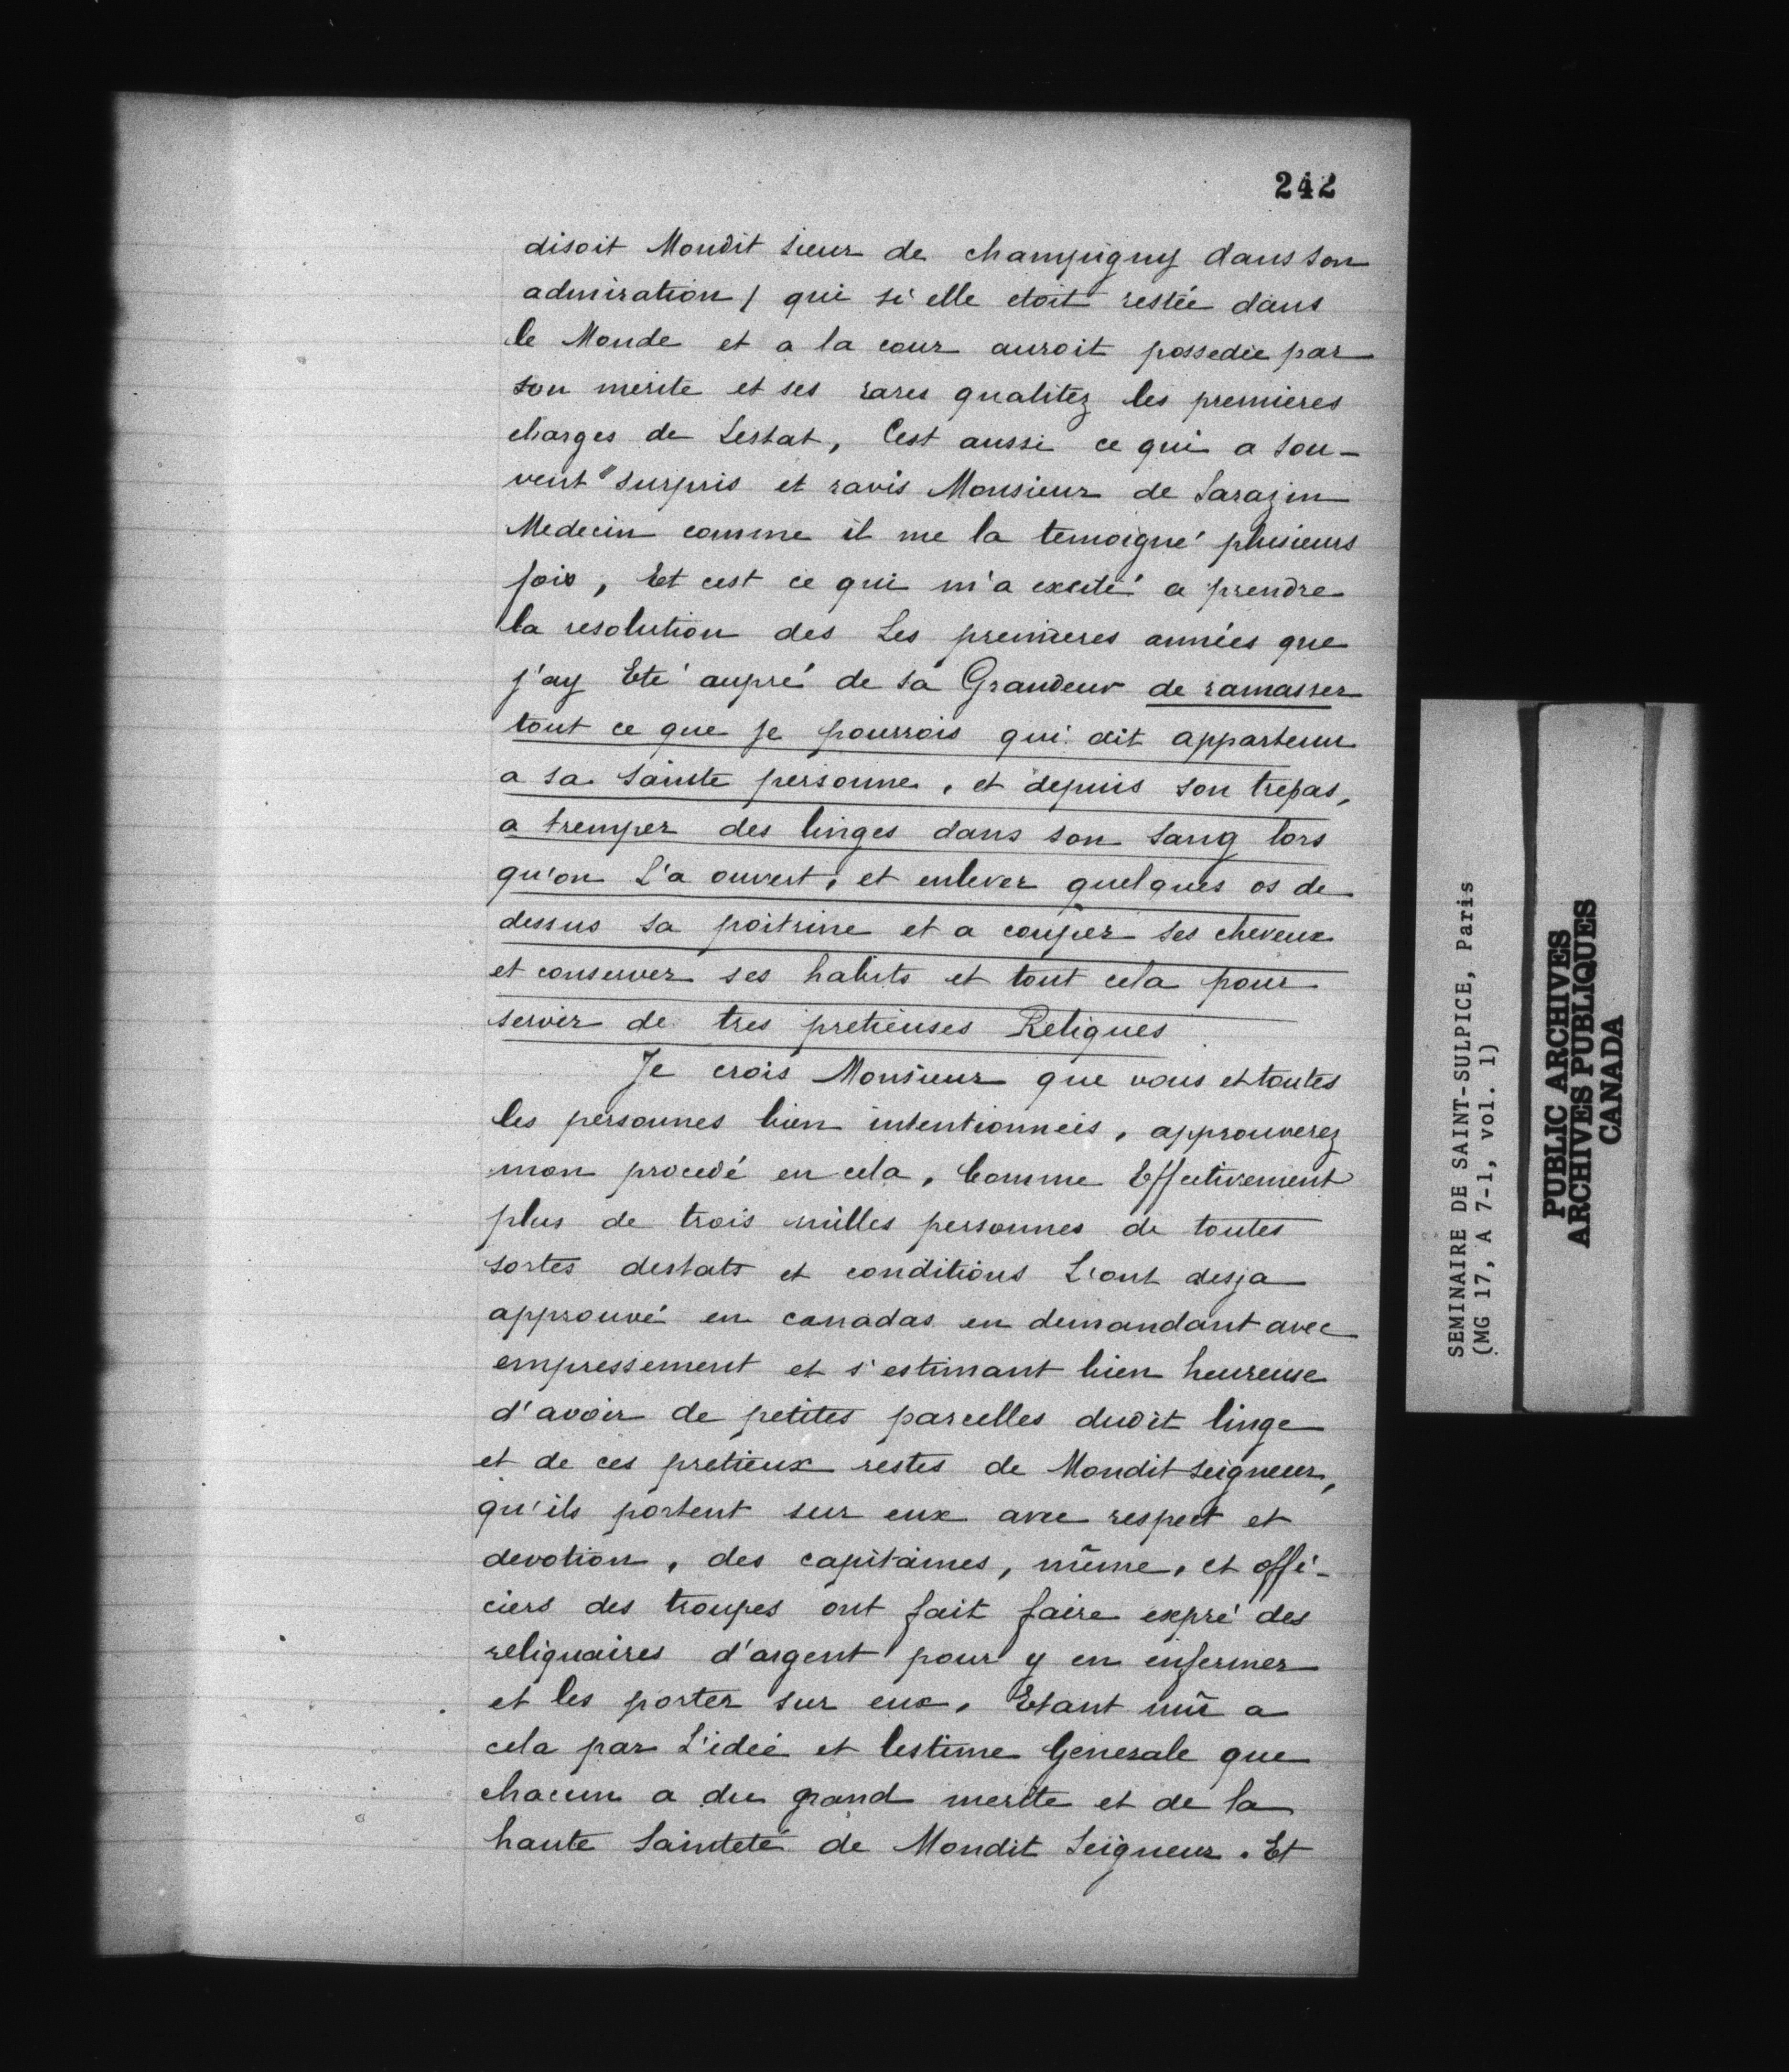 242
disoit Mondit sieur de champigny dans son
admiration / qui si elle etoit restée dans
le Monde et a la cour auroit possedée par
son merite et ses rares qualitez les premieres
charges de Lestat, C'est aussi ce qui a sou-
vent surpris et ravis Monsieur de Sarazin
Medecin comme il me la temoigné plusieurs
fois, Et cest ce qui m'a excité a prendre
la resolution des Les premieres années que
j'ay Eté aupré de sa Grandeur de ramasser
tout ce que je pourrois qui ait appartenu
a sa sainte personne, et depuis son trepas,
a tremper des linges dans son sang lors
qu'on L'a ouvert, et enlever quelques os de
dessus sa poitrine et a couper ses cheveux
et conserver ses habits et tout cela pour
servir de tres pretieuses Reliques
Je crois Monsieur que vous et toutes
les personnes bien intentionneis, approuverez
mon procedé en cela, Comme Effectivement
plus de trois milles personnes de toutes
sortes destats et conditions L'ont desja
approuvé en canadas en demandant avec
empressement et s'estimant bien heureuse
d'avoir de petites parcelles dudit linge
et de ces pretieux restes de Mondit seigneur,
qu'ils portent sur eux avec respect et
devotion, des capitaines, même, et offi-
ciers des troupes ont fait faire expré des
reliquaires d'argent pour y en enfermer
et les porter sur eux, Etant mû a
cela par L'idée et lestime Generale que
chacun a du grand merite et de la
haute Sainteté de Mondit Seigneur. Et
SEMINAIRE DE SAINT-SULPICE, Paris
(MG 17, A 7-1, vol. 1)
PUBLIC ARCHIVES
ARCHIVES PUBLIQUES
CANADA